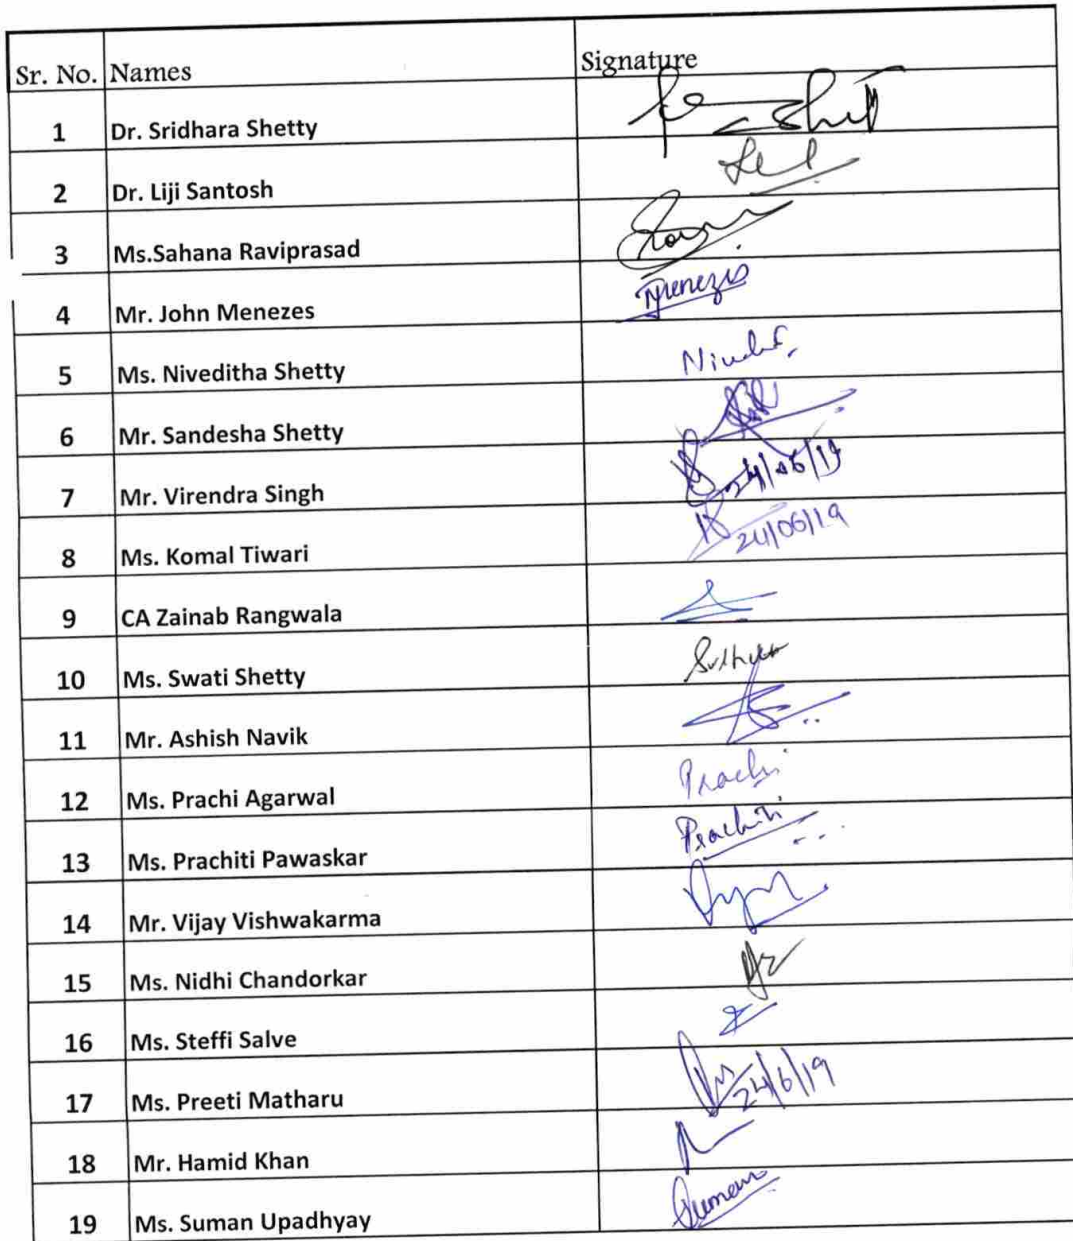 Sr. No. Names Signature
1 Dr. Sridhara Shetty
2 Dr. Liji Santosh
3 Ms.Sahana Raviprasad
4 Mr. John Menezes Menezes
5 Ms. Niveditha Shetty
6 Mr. Sandesha Shetty
7 Mr. Virendra Singh 24/06/19
8 Ms. Komal Tiwari 24/06/19
9 CA Zainab Rangwala
10 Ms. Swati Shetty
11 Mr. Ashish Navik
12 Ms. Prachi Agarwal Prachi
13 Ms. Prachiti Pawaskar Prachiti
14 Mr. Vijay Vishwakarma
15 Ms. Nidhi Chandorkar
16 Ms. Steffi Salve
17 Ms. Preeti Matharu 24/6/19
18 Mr. Hamid Khan
19 Ms. Suman Upadhyay Suman